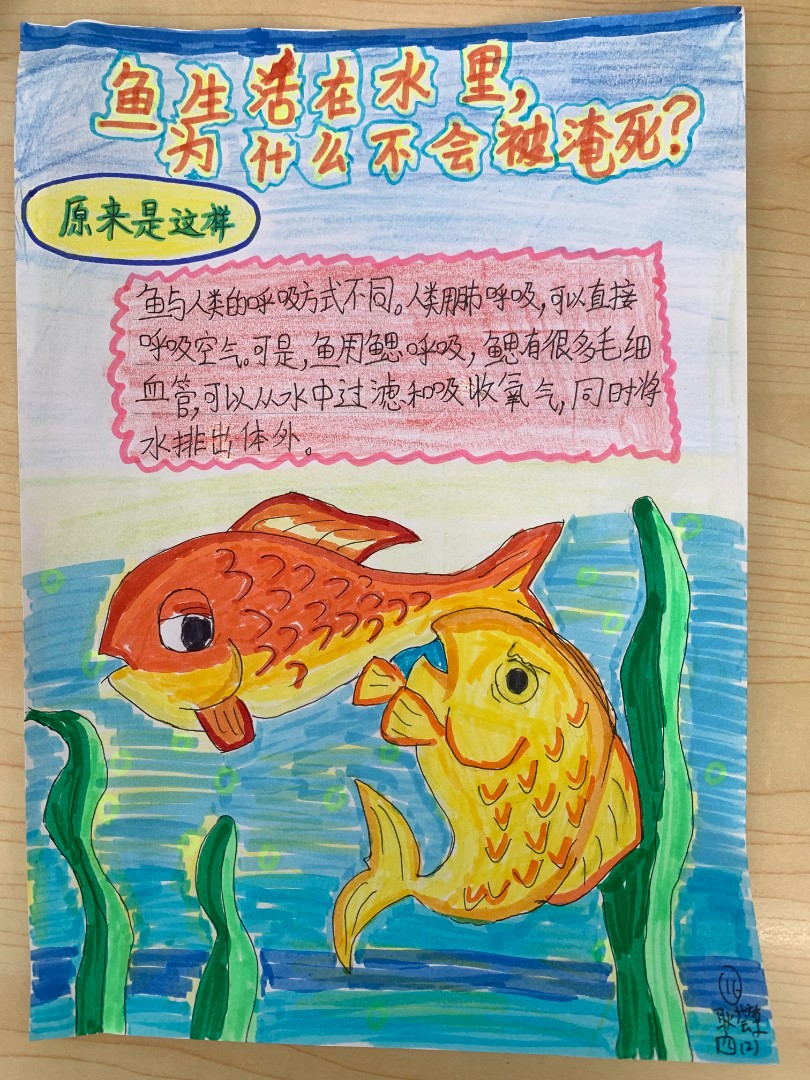 鱼生活在水里，
为什么不会被淹死？
原来是这样
鱼与人类的呼吸方式不同。人类用肺呼吸，可以直接
呼吸空气。可是，鱼用鳃呼吸，鳃有很多毛细
血管，可以从水中过滤和吸收氧气，同时将
水排出体外。
四(2)